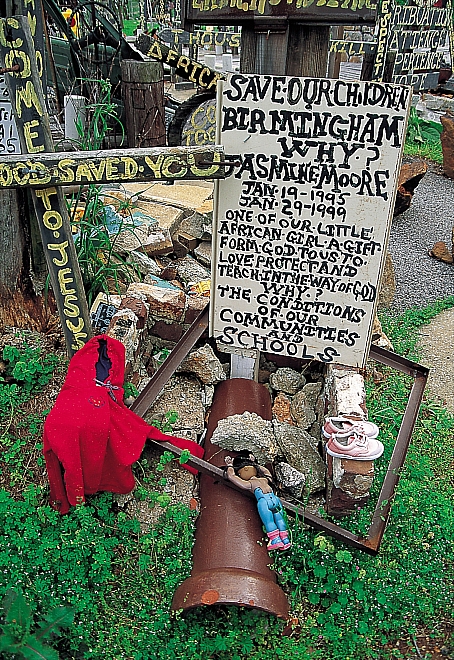 COME
TO JESUS
AFRICA
KILL
GOD SAVED YOU
SAVE OUR CHILDREN
BIRMINGHAM
WHY?
JASMINE MOORE
JAN-19-1995
JAN-29-1999
ONE OF OUR LITTLE
AFRICAN GIRL-A-GIFT
FORM-GOD-TO US-TO
LOVE, PROTECT AND
TEACH-IN THE WAY OF GOD
WHY?
THE CONDITIONS
OF OUR
COMMUNITIES
AND
SCHOOLS